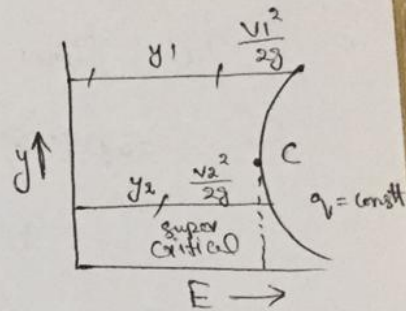 y1 V1²/2g
y
C
y2 V2²/2g
q = constt
super
critical
E